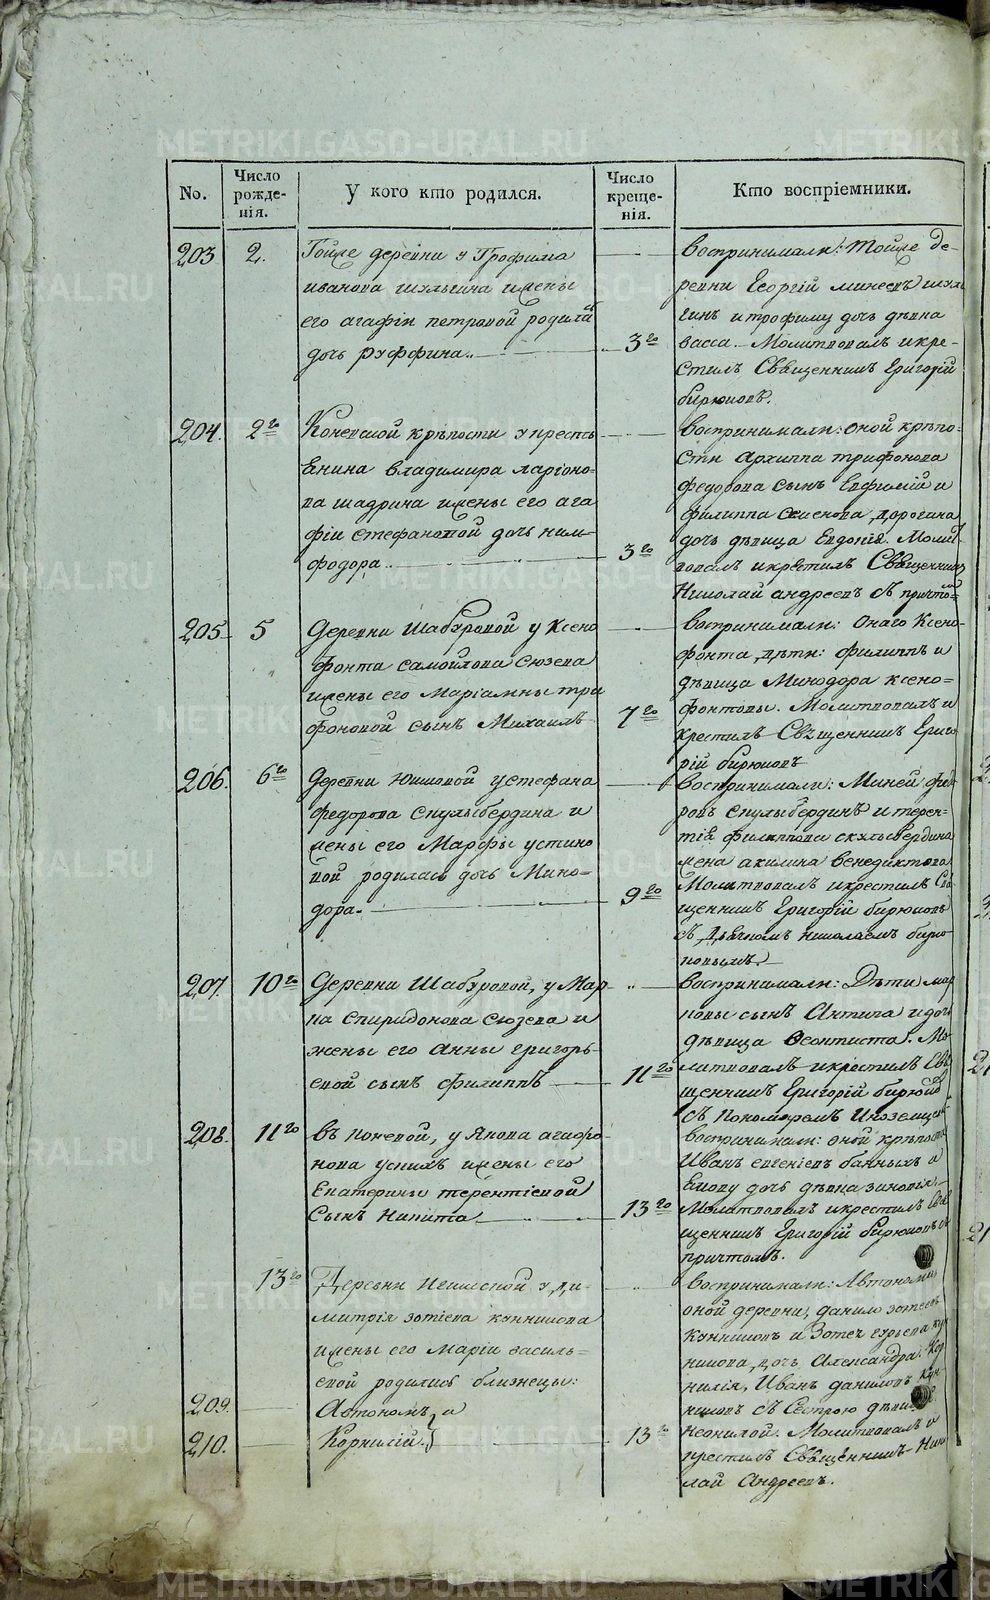 METRIKI.GASO-URAL.RU
No.
Число рожде-нія.
У кого кто родился.
Число креще-нія.
Кто воспріемники.
203
2.
Тойже деревни у Трофима
иванова шульгина ижены
его агафіи петровой родилась
дочь руффина.
3го
воспринимали: Тойже де-
ревни Георгій минеевъ шуль
гинъ итрофиму дочь дѣвка
васса. Молитвовалъ икре-
стилъ Священникъ Григорій
бирюковъ.
204.
2го
Коневской крѣпости у крестья
Янина владимира ларіоно-
ва шадрина ижены его ага
фіи стефановой дочь ним-
фодора
3го
воспринимали: оной крѣпо-
сти Архиппа трифонова
федорова сынъ Евфимій и
филиппа дорогина
дочь дѣвица Евдокія. Молит
вовалъ икрестилъ Священникъ
Николай андреевъ съ причтомъ
205
5
Деревни Шабуровой у Ксено
фонта самойлова сюзева
ижены его Маріамны три
фоновой сынъ Михаилъ
7го
воспринимали: Онаго Ксено-
фонта, дѣти: филиппъ и
дѣвица Минодора ксено-
фонтовы. Молитвовалъ и
крестилъ Священникъ Григо
рій бирюковъ
206.
6го
Деревни Юшковой устефана
федорова скулыбердина и
жены его Марфы устино
вой родилась дочь Мино-
дора.
9го
воспринимали: Миней фео
ровъ скулыбердинъ и терен-
тія филиппова скулыбердина
жена акилина венедиктова
Молитвовалъ икрестилъ Свя
щенникъ Григорій бирюковъ
съ дьячкомъ николаемъ бирю
ковымъ
207.
10го
Деревни Шабуровой, у Мар
ка спиридонова сюзева и
жены его Анны григорь-
евой сынъ филиппъ
11го
воспринимали: Дѣти мар
ковы сынъ Антипа идочь
дѣвица Феоктиста. Мо-
литвовалъ икрестилъ Свя
щенникъ Григорій бирюковъ
съ Пономаремъ
208.
11го
въ коневой, у Якова агафо-
нова ижены его
Екатерины терентіевой
Сынъ Никита
13го
воспринимали: оной крѣпости
Иванъ евгеніевъ банныхъ и
Якову дочь дѣвка зиновія
Молитвовалъ икрестилъ Свя
щенникъ Григорій бирюковъ съ
причтомъ.
13го
Деревни у ди-
митрія зотіева канникова
ижены его Маріи василь-
евой родились близнецы:
209.
Автономъ, и
210.
Корнилій.
13го
воспринимали: Автонома
оной деревни, данило зотеевъ
канниковъ и Зотея гурьева кан
никова, дочь Александра. Кор
нилія, Иванъ даниловъ кан
никовъ съ Сестрою дѣвицею
неонилой. Молитвовалъ и
крестилъ Священникъ Нико
лай Андреевъ.